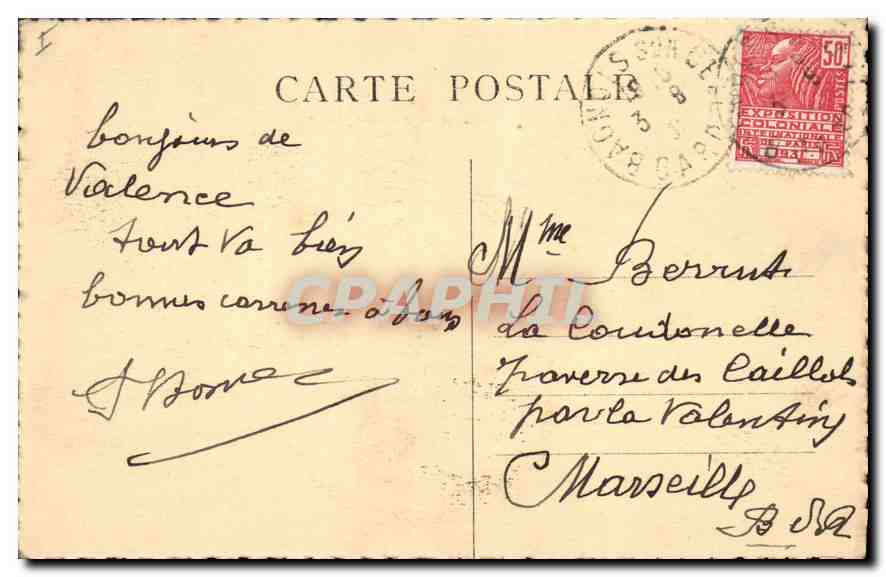 I
CARTE POSTALE
BAGNOLS SUR CEZE
GARD
50c
POSTES
EXPOSITION
COLONIALE
INTERNATIONALE
DE PARIS
1931
bonjours de
Valence
tout va bien
bonnes à tous
Mme Berrut
La Coudonelle
traverse des Caillols
par la Valentine
Marseille
B d R
CPAPHIL